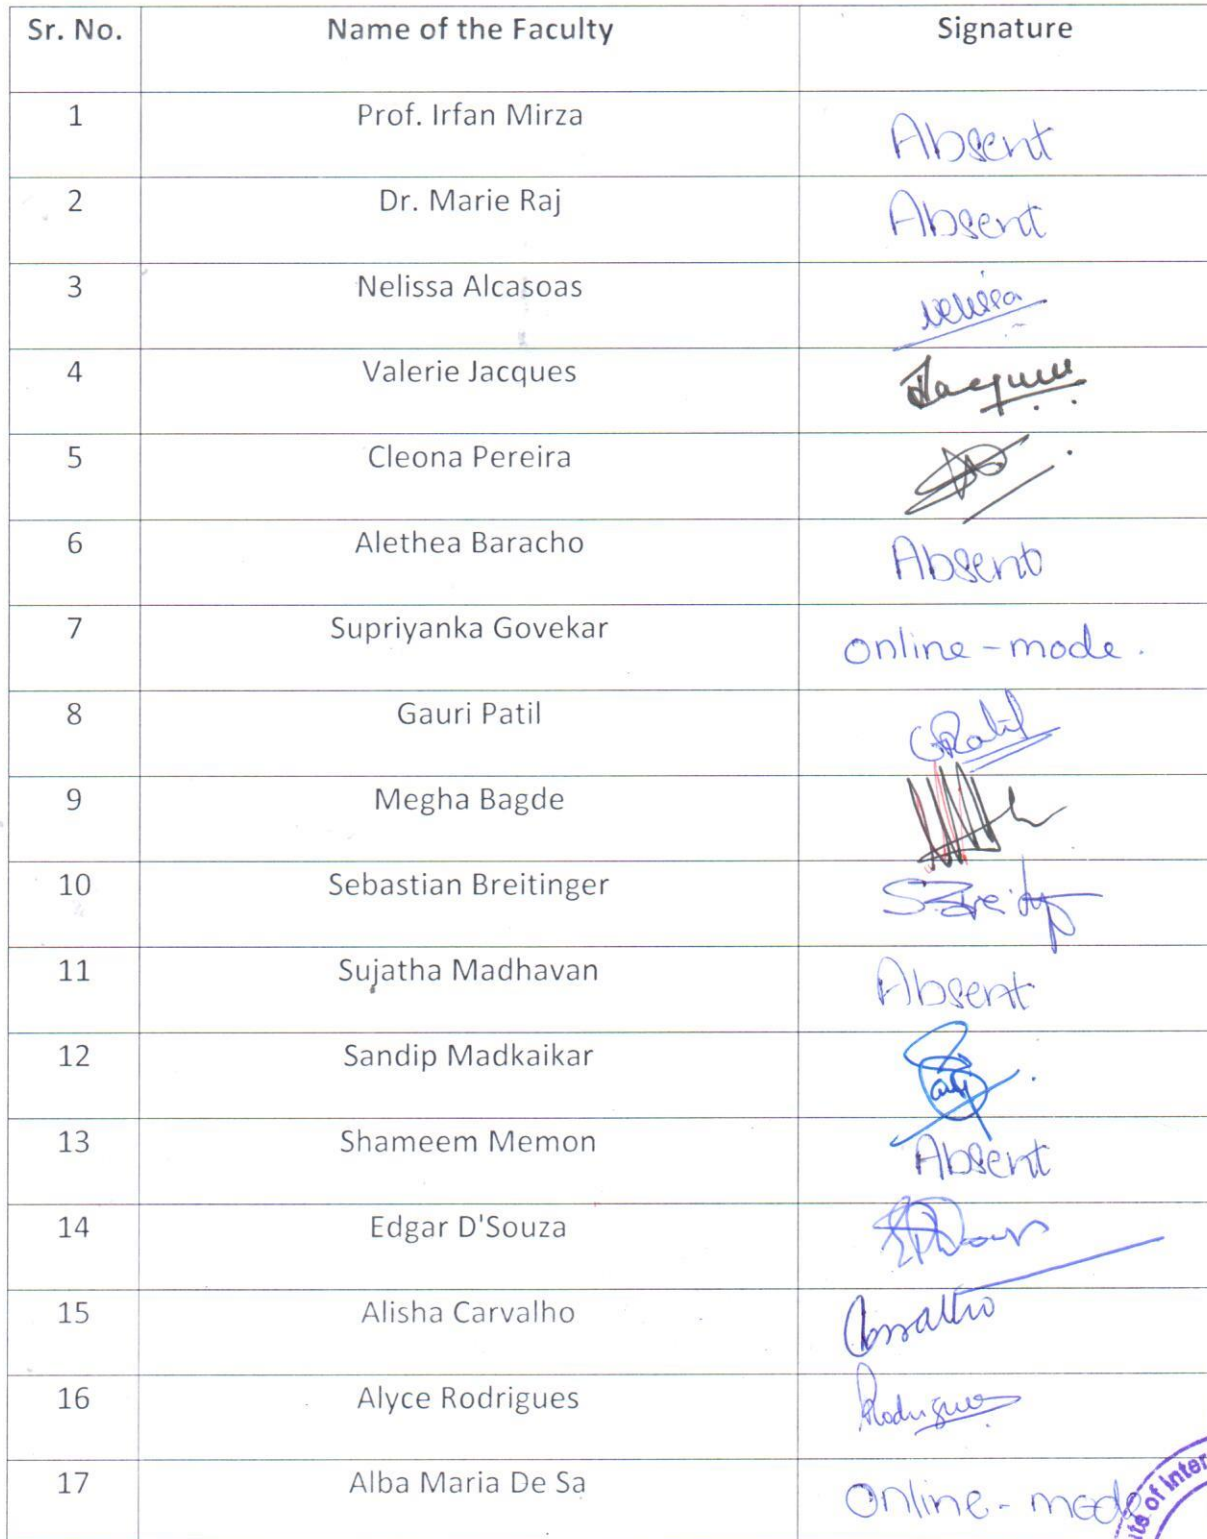 Sr. No. Name of the Faculty Signature
1 Prof. Irfan Mirza Absent
2 Dr. Marie Raj Absent
3 Nelissa Alcasoas Nelissa
4 Valerie Jacques Jacques
5 Cleona Pereira
6 Alethea Baracho Absent
7 Supriyanka Govekar Online-mode.
8 Gauri Patil GPatil
9 Megha Bagde
10 Sebastian Breitinger
11 Sujatha Madhavan Absent
12 Sandip Madkaikar
13 Shameem Memon Absent
14 Edgar D'Souza
15 Alisha Carvalho Carvalho
16 Alyce Rodrigues Rodrigues
17 Alba Maria De Sa Online-mode
of Inter